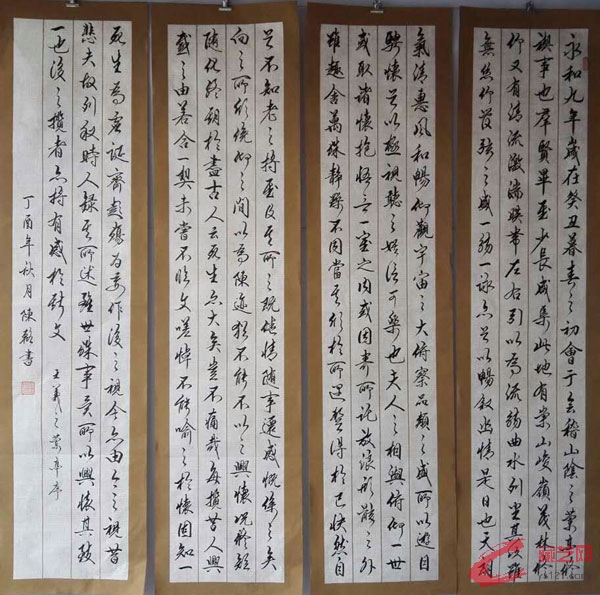 永和九年歲在癸丑暮春之初會于會稽山陰之蘭亭修
禊事也群賢畢至少長咸集此地有崇山峻嶺茂林修
竹又有清流激湍映帶左右引以為流觴曲水列坐其次雖
無絲竹管弦之盛一觴一詠亦足以暢敘幽情是日也天朗
氣清惠風和暢仰觀宇宙之大俯察品類之盛所以遊目
騁懷足以極視聽之娛信可樂也夫人之相與俯仰一世
或取諸懷抱悟言一室之內或因寄所託放浪形骸之外
雖趣舍萬殊靜躁不同當其欣於所遇暫得於己快然自
足不知老之將至及其所之既倦情隨事遷感慨係之矣
向之所欣俛仰之間以為陳迹猶不能不以之興懷況修短
隨化終期於盡古人云死生亦大矣豈不痛哉每攬昔人興
感之由若合一契未嘗不臨文嗟悼不能喻之於懷固知一
死生為虛誕齊彭殤為妄作後之視今亦由今之視昔
悲夫故列敘時人錄其所述雖世殊事異所以興懷其致
一也後之攬者亦將有感於斯文 王羲之蘭亭序
丁酉年秋月陳書